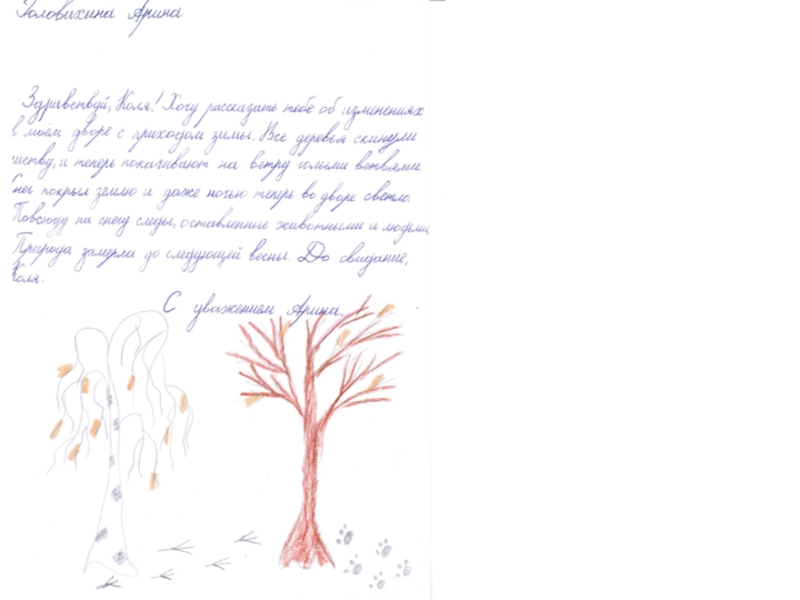 Головихина Арина
Здравствуй, Коля! Хочу рассказать тебе об изменениях
в моём дворе с приходом зимы. Все деревья скинули
листву, и теперь покачивают на ветру голыми ветвями.
Снег покрыл землю и даже ночью теперь во дворе светло.
Повсюду на снегу следы, оставленные животными и людьми.
Природа замерла до следующей весны. До свидание,
Коля.
С уважением Арина.